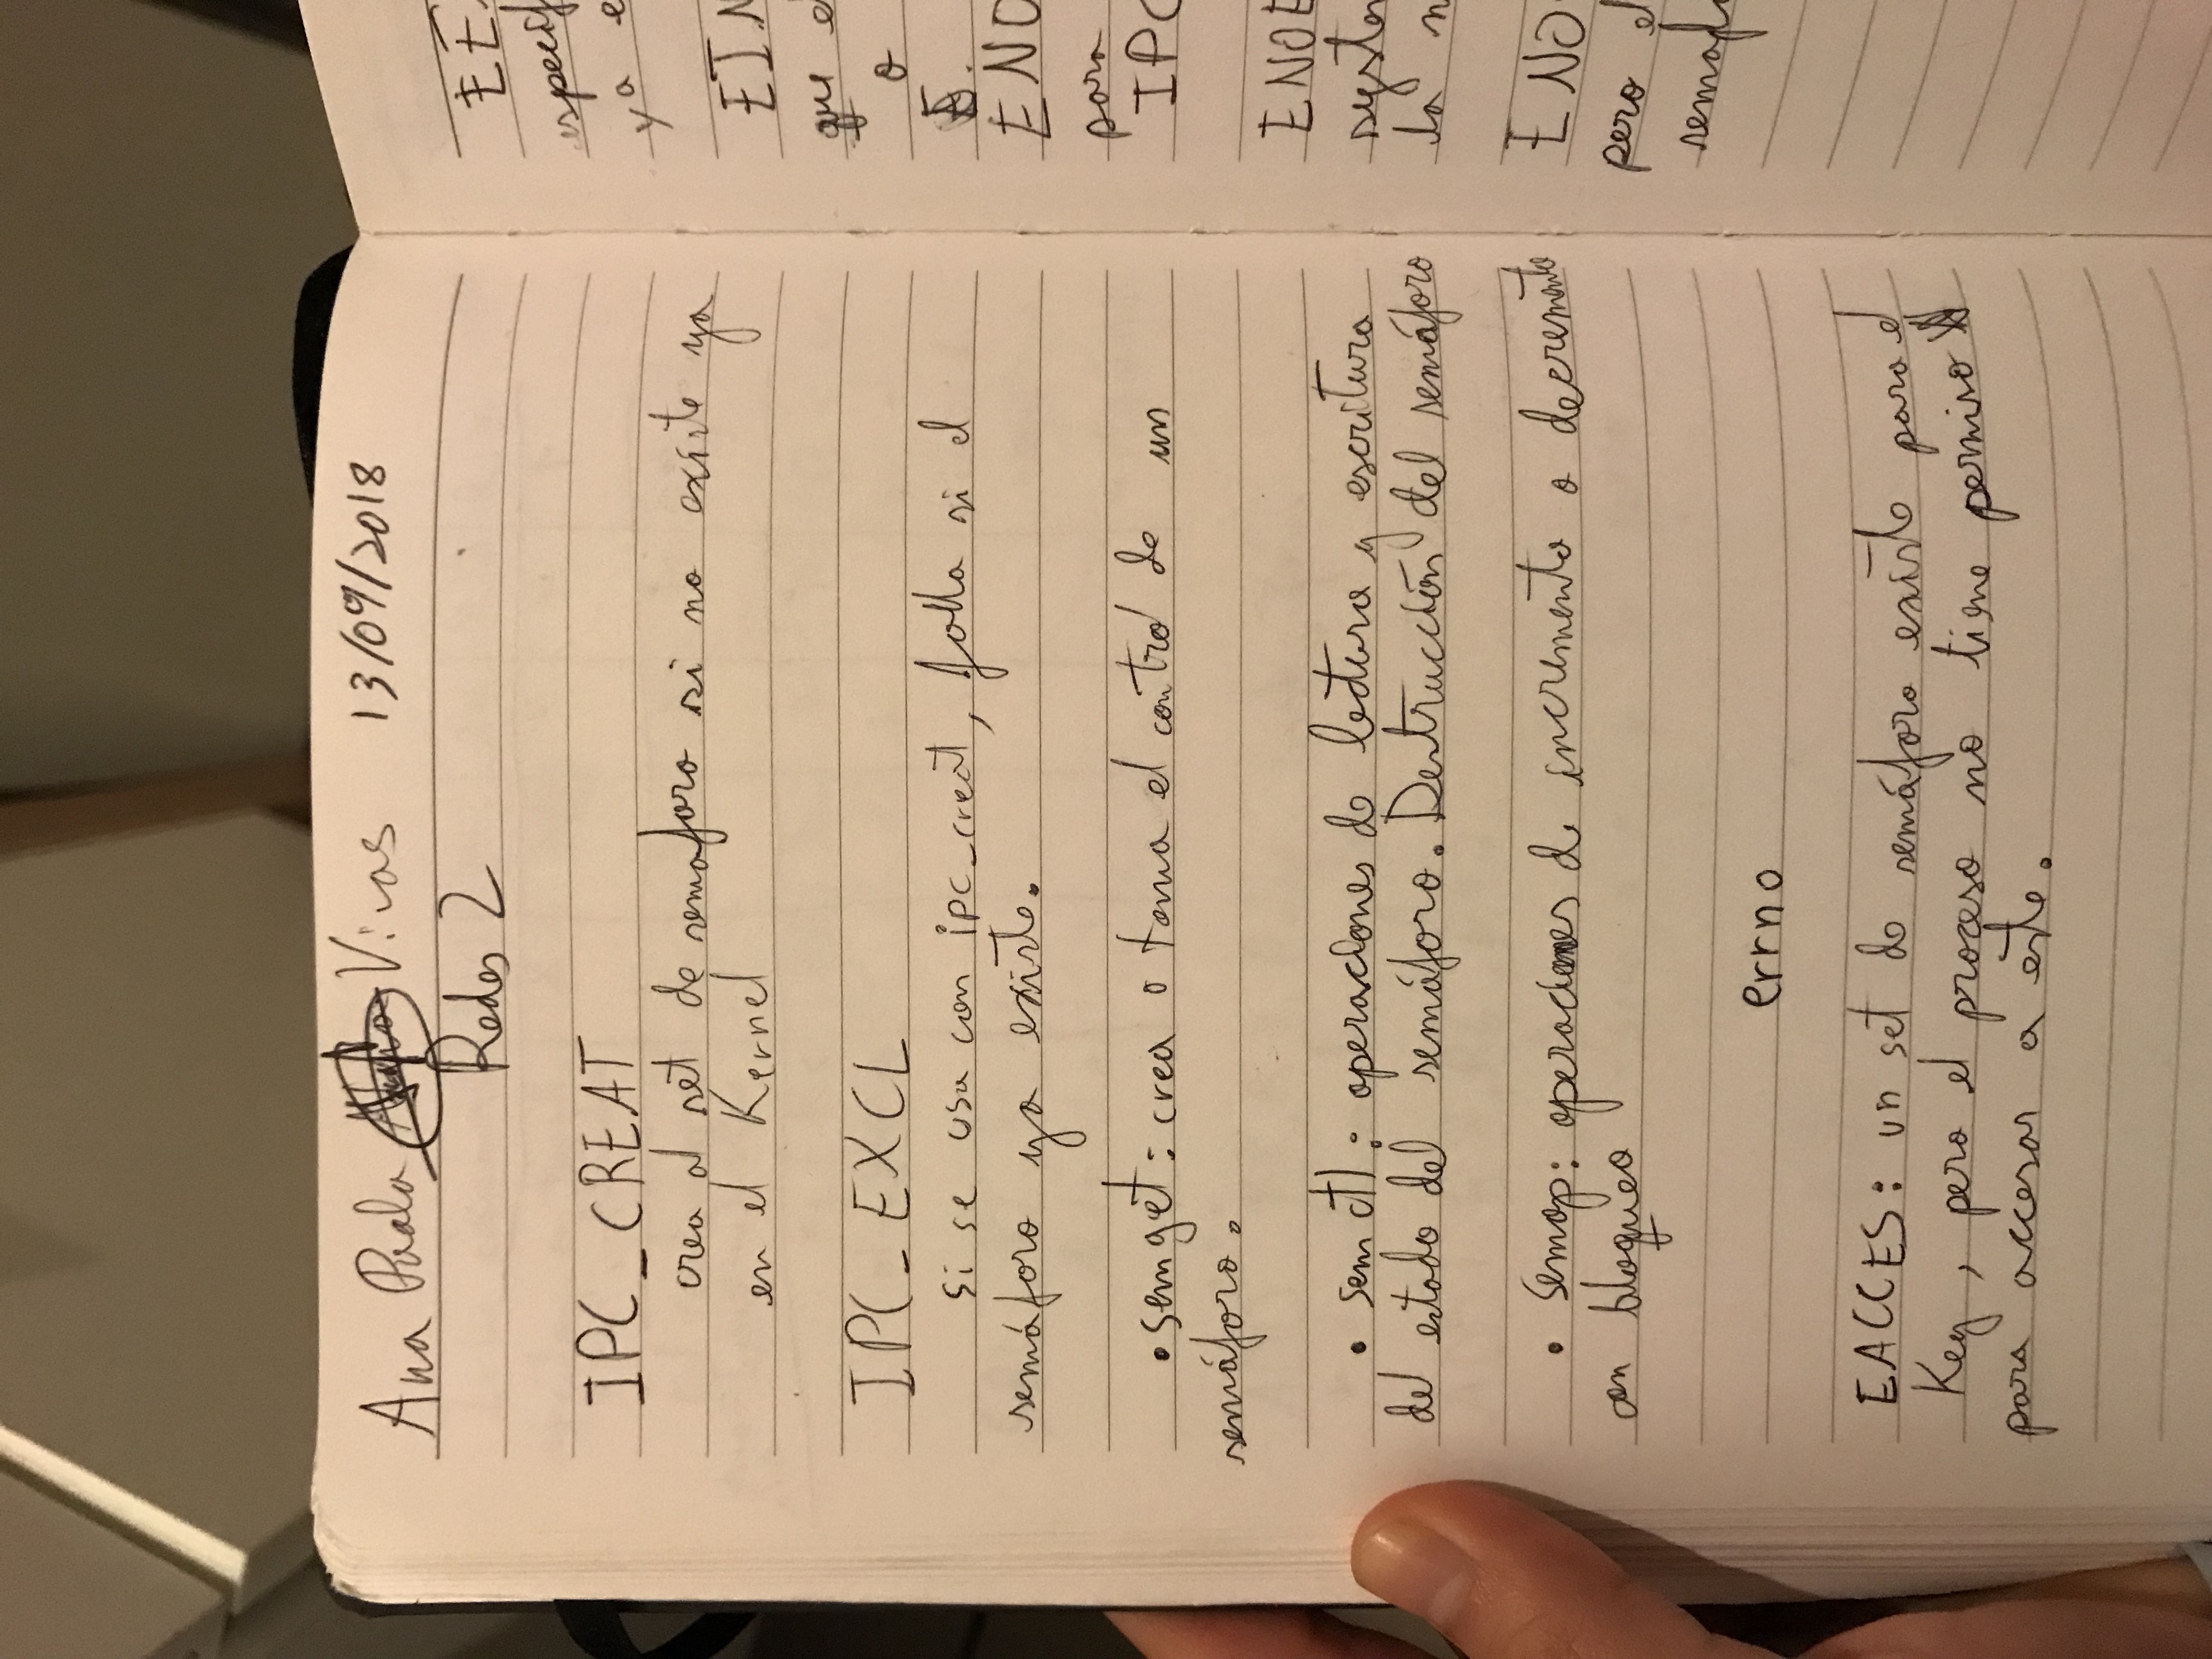 Ana Paola Vivas 13/09/2018
Redes 2
IPC_CREAT
crea al set de semaforo si no existe ya
en el Kernel
IPC_EXCL
si se usa con ipc_creat, falla si el
semáforo ya existe.
• semget: crea o toma el control de un
semáforo.
• semctl: operaciones de lectura y escritura
del estado del semáforo. Destrucción del semáforo
• semop: operaciones de incremento o decremento
con bloqueo
errno
EACCES: un set de semáforo existe para el
Key, pero el proceso no tiene permiso
para accesar a este.
especif
ya e
que el
o
ENO
para
IPC
ENOE
la
ENO
pero el